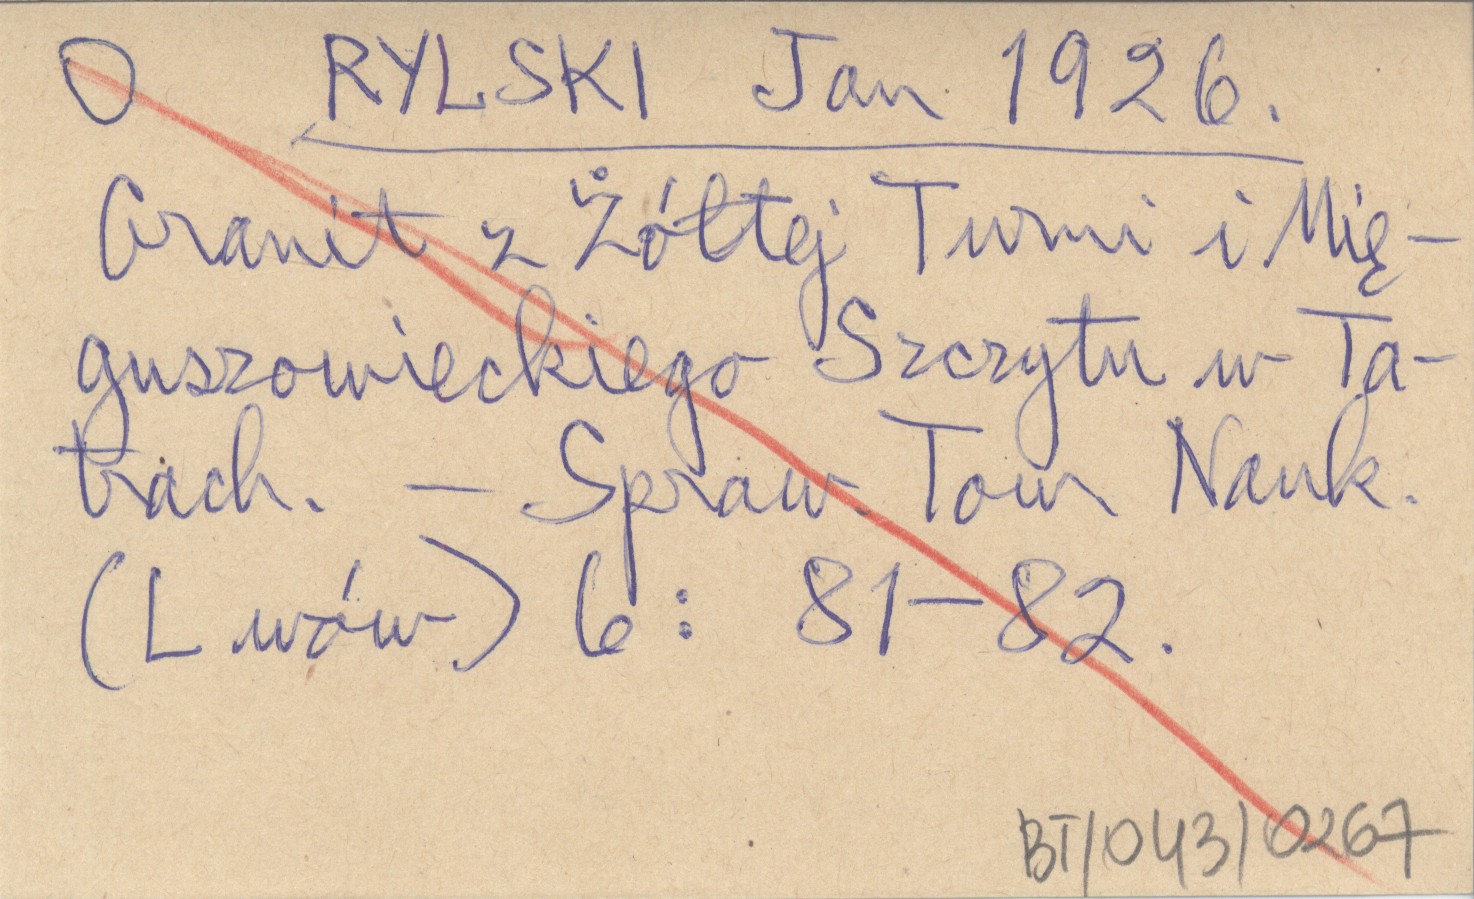 O RYLSKI Jan 1926.
Granit z Żółtej Turni i Mię-
guszowieckiego Szczytu w Ta-
trach. — Spraw. Tow. Nauk.
(Lwów) 6: 81-82.
BT/043/0267